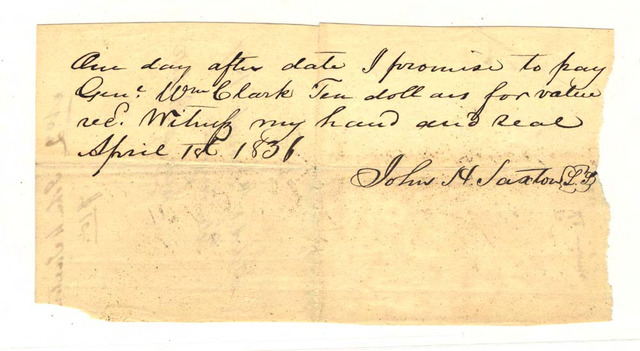 One day after date I promise to pay
Genl. Wm Clark Ten dollars for value
recd. Witness my hand and seal
April 1st 1836
John H Saxton